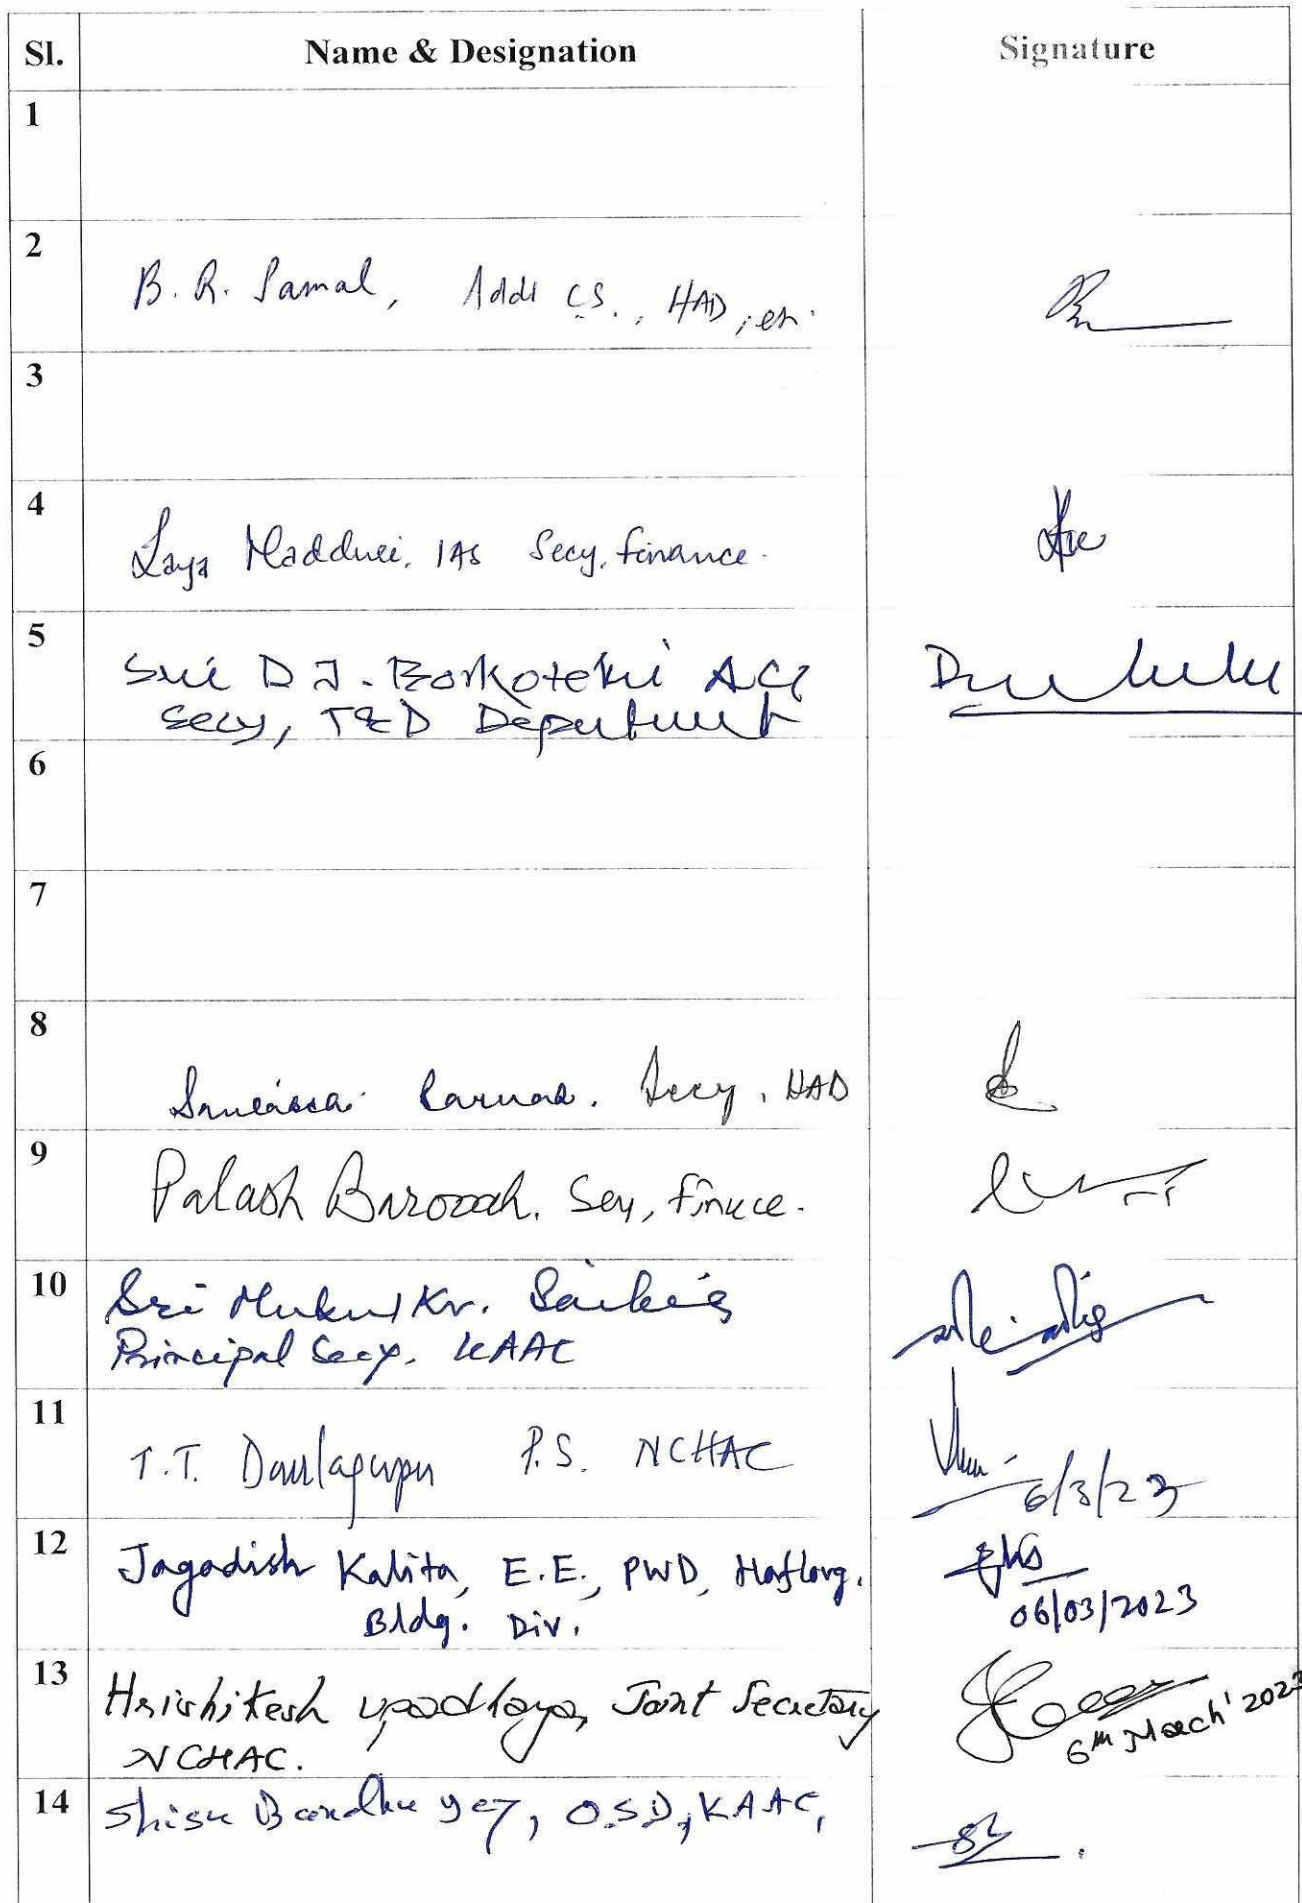 Sl. Name & Designation Signature
1
2
B. R. Samal, Addl CS., HAD, etc.
3
4
Laya Madduri, IAS Secy, Finance.
5
Sri D J. Borkotoki ACS
Secy, T&D Department
6
7
8
Secy, HAD
9
Palash Barooah, Secy, Finance.
10
Sri Mukul Kr. Saikia
Principal Secy. KAAC
11
T.T. Daulagupu P.S. NCHAC
6/3/23
12
Jagadish Kalita, E.E., PWD, Haflong.
Bldg. Div.
06/03/2023
13
Hrishikesh Upadhaya, Joint Secretary
NCHAC.
6th March' 2023
14
Shisu Bandhu, O.S.D, KAAC,